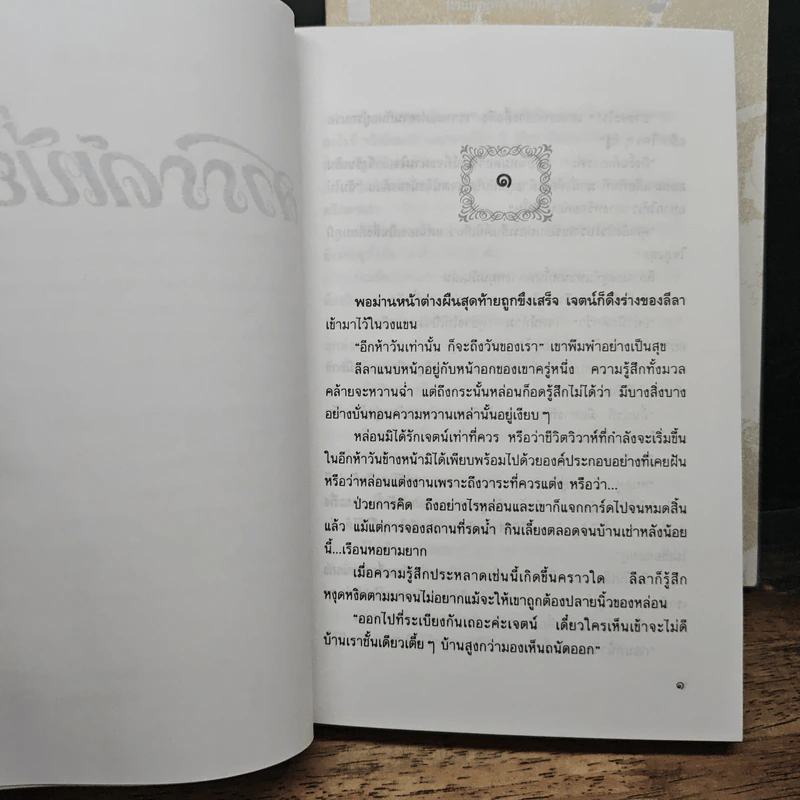 ๑
พอม่านหน้าต่างผืนสุดท้ายถูกขึงเสร็จ เจตน์ก็ดึงร่างของลีลา
เข้ามาไว้ในวงแขน
“อีกห้าวันเท่านั้น ก็จะถึงวันของเรา” เขาพึมพำอย่างเป็นสุข
ลีลาแนบหน้าอยู่กับหน้าอกของเขาครู่หนึ่ง ความรู้สึกทั้งมวล
คล้ายจะหวานฉ่ำ แต่ถึงกระนั้นหล่อนก็อดรู้สึกไม่ได้ว่า มีบางสิ่งบาง
อย่างบั่นทอนความหวานเหล่านั้นอยู่เงียบ ๆ
หล่อนมิได้รักเจตน์เท่าที่ควร หรือว่าชีวิตวิวาห์ที่กำลังจะเริ่มขึ้น
ในอีกห้าวันข้างหน้ามิได้เพียบพร้อมไปด้วยองค์ประกอบอย่างที่เคยฝัน
หรือว่าหล่อนแต่งงานเพราะถึงวาระที่ควรแต่ง หรือว่า...
ป่วยการคิด ถึงอย่างไรหล่อนและเขาก็แจกการ์ดไปจนหมดสิ้น
แล้ว แม้แต่การจองสถานที่รดน้ำ กินเลี้ยงตลอดจนบ้านเช่าหลังน้อย
นี้...เรือนหอยามยาก
เมื่อความรู้สึกประหลาดเช่นนี้เกิดขึ้นคราวใด ลีลาก็รู้สึก
หงุดหงิดตามมาจนไม่อยากแม้จะให้เขาถูกต้องปลายนิ้วของหล่อน
“ออกไปที่ระเบียงกันเถอะค่ะเจตน์ เดี๋ยวใครเห็นเข้าจะไม่ดี
บ้านเราชั้นเดียวเตี้ย ๆ บ้านสูงกว่ามองเห็นถนัดออก”
๑